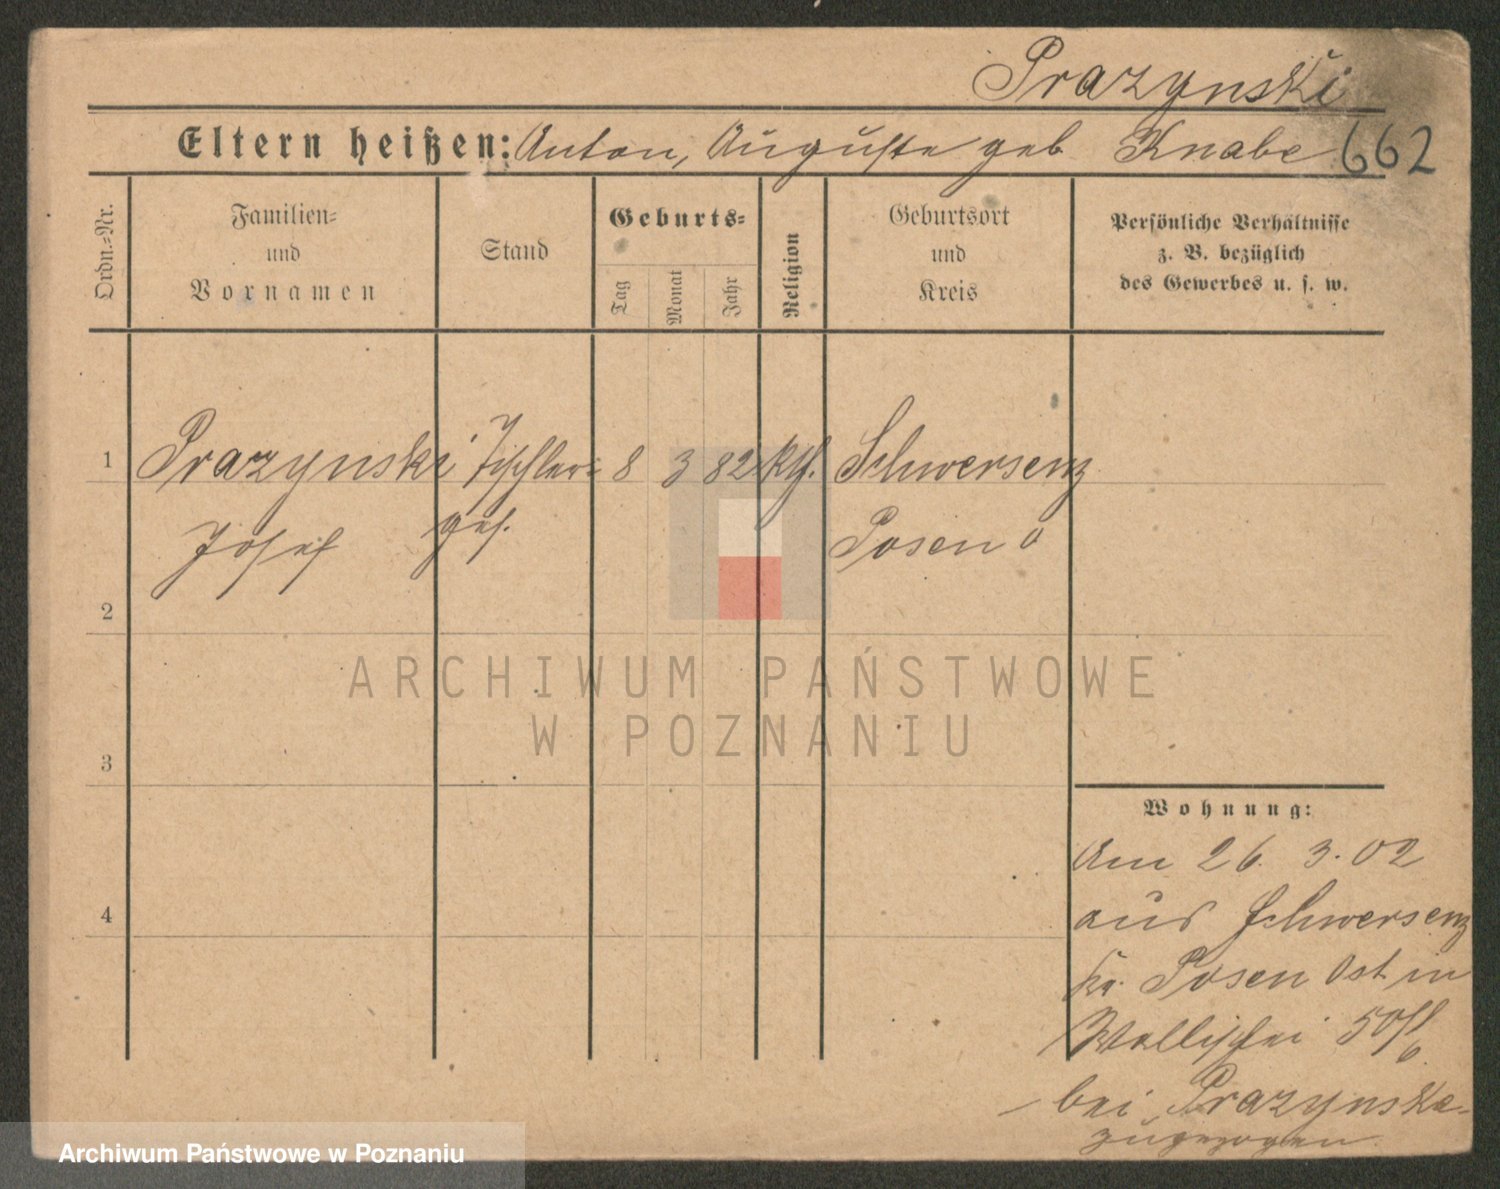 Prazynski
Eltern heißen: Anton, Auguste geb Knabe 662
Ordn.=Nr.
Familien=
und
Vornamen
Stand
Geburts=
Tag
Monat
Jahr
Religion
Geburtsort
und
Kreis
Persönliche Verhältnisse
z. B. bezüglich
des Gewerbes u. s. w.
1 Prazynski Tischler= 8 3 82 kth. Schwersenz
Josef ges. Posen O
2
3
4
Wohnung:
Am 26. 3. 02
aus Schwersenz
Kr. Posen Ost in
Wallischei 50/
bei Prazynska
zugezogen
ARCHIWUM PAŃSTWOWE
W POZNANIU
Archiwum Państwowe w Poznaniu